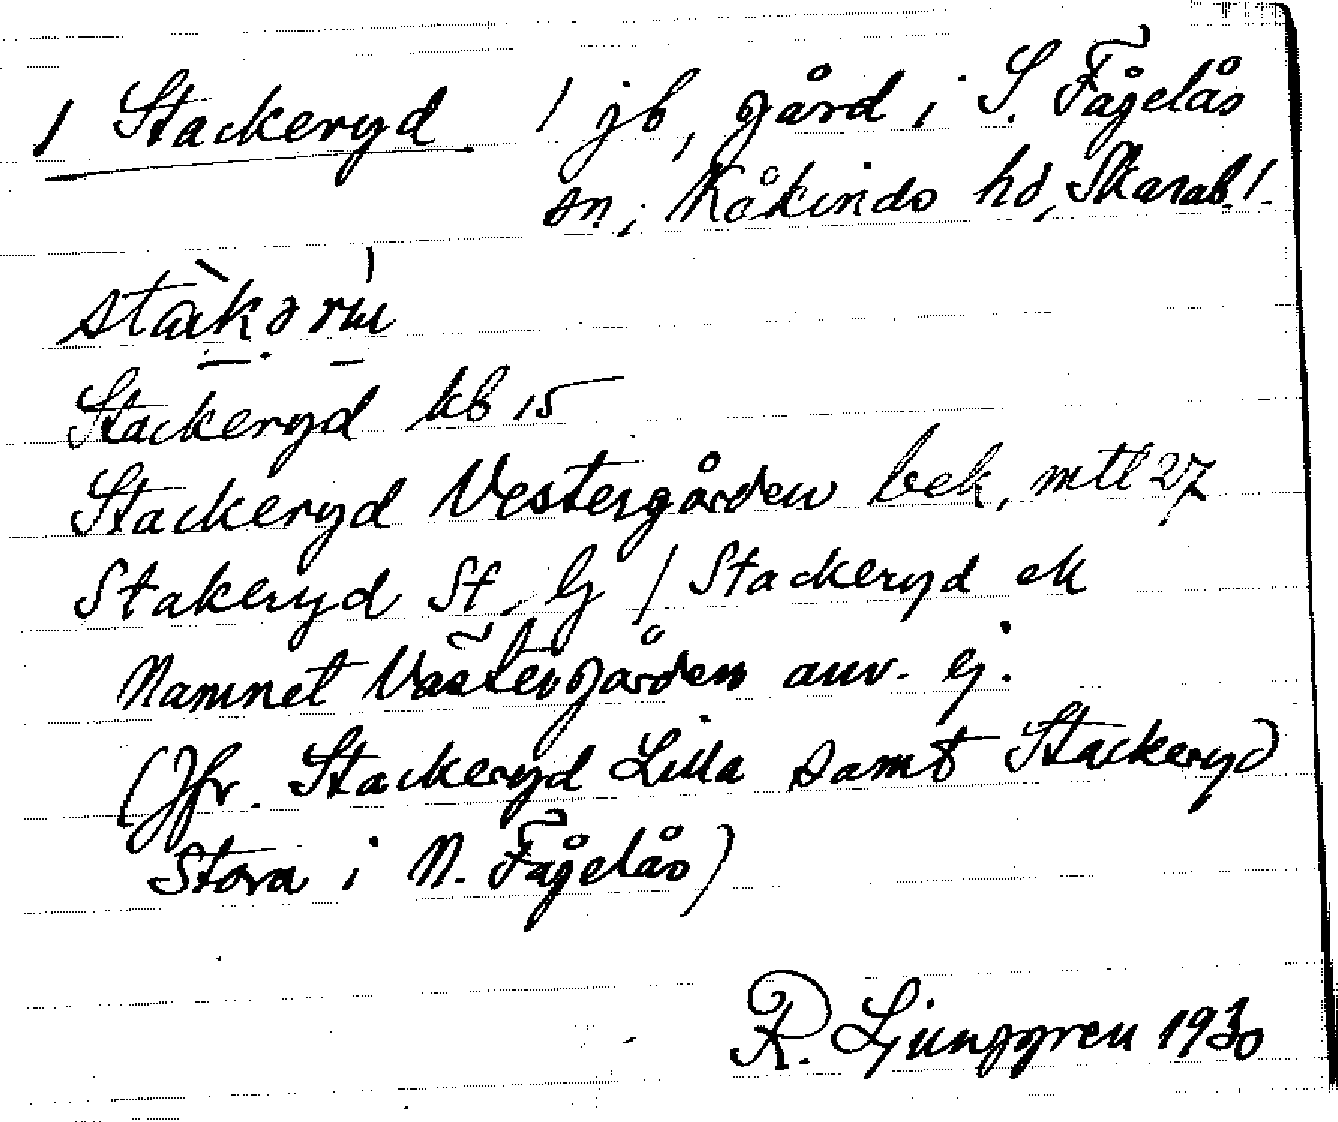 1 Stackeryd 1 jb, gård i S. Fågelås
sn; Kåkinds hd, Skarab. l.
stàkərìu
Stackeryd kb 15
Stackeryd Vestergården bek, mtl 27
Stakeryd St, G / Stackeryd ek
Namnet Västergården anv. ej.
(Jfr. Stackeryd Lilla samt Stackeryd
Stora i N. Fågelås)
R. Ljunggren 1930